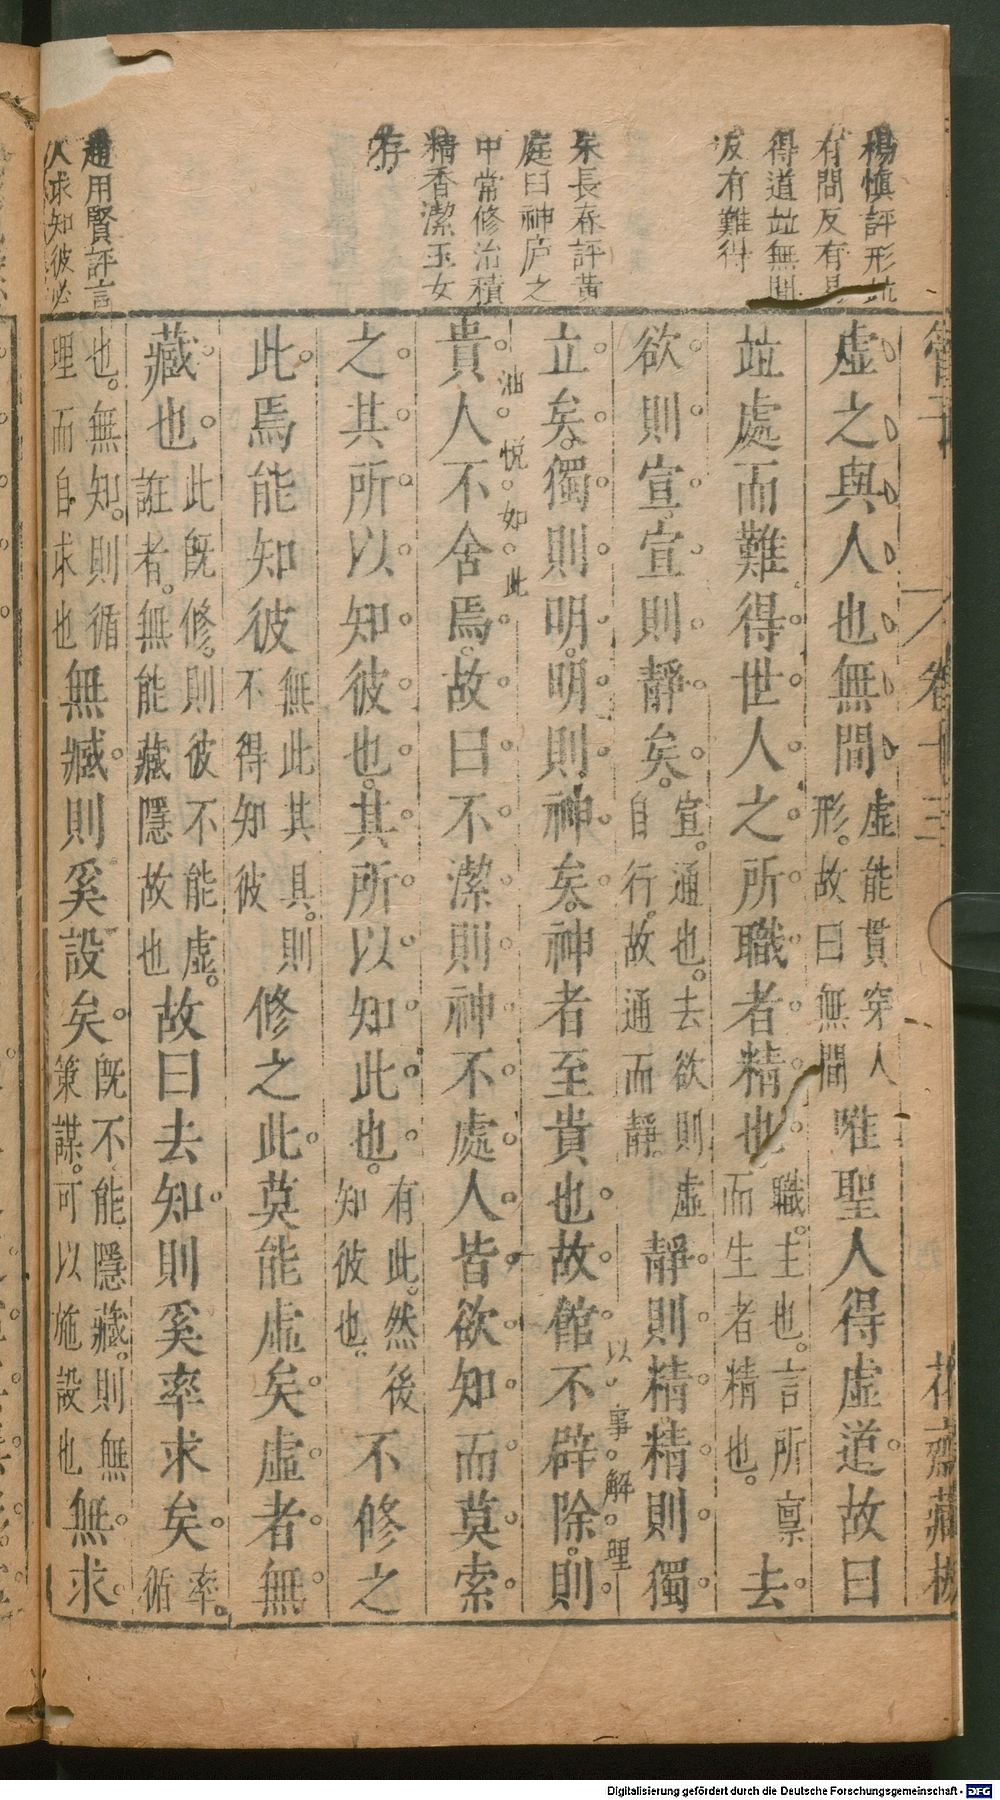 管子
卷十三
花齋藏板
楊慎評形竝
有間反有易
得道竝無間
反有難得
朱長春評黃
庭曰神庐之
中常修治積
精香潔玉女
存
趙用賢評言
人求知彼必
虛之與人也無間虛能貫穿人形。故曰無間唯聖人得虛道故曰
竝處而難得世人之所職者精也職。主也。言所禀而生者精也。去
欲則宣宣則靜矣。宣。通也。去欲則虛自行。故通而靜。靜則精精則獨
以事解理
立矣。獨則明。明則神矣。神者至貴也故館不辟除。則
油悅如此
貴人不舍焉。故曰不潔則神不處人皆欲知而莫索
之其所以知彼也。其所以知此也。有此。然後知彼也。不修之
此焉能知彼無此其具。則不得知彼修之此莫能虛矣虛者無
藏也此旣修。則彼不能虛。誑者。無能藏隱故也故曰去知則奚率求矣率。循
也。無知。則循理而自求也無藏則奚設矣旣不能隱藏。則無策謀。可以施設也無求
Digitalisierung gefördert durch die Deutsche Forschungsgemeinschaft - DFG